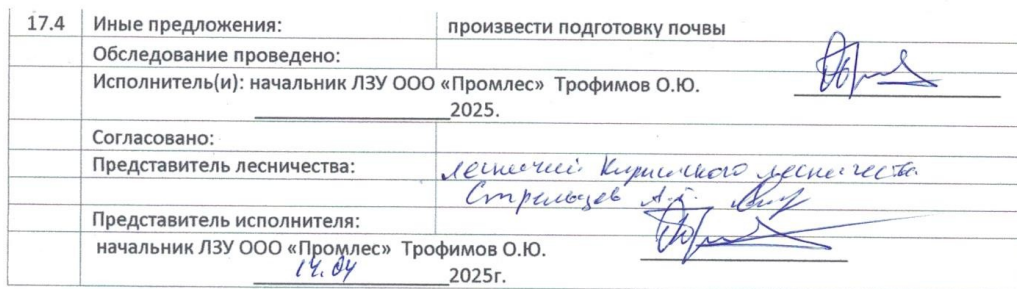 17.4 Иные предложения: произвести подготовку почвы
Обследование проведено:
Исполнитель(и): начальник ЛЗУ ООО «Промлес» Трофимов О.Ю.
2025.
Согласовано:
Представитель лесничества: лесничий Киришского лесничества
Стрельцов А.
Представитель исполнителя:
начальник ЛЗУ ООО «Промлес» Трофимов О.Ю.
14.04 2025г.